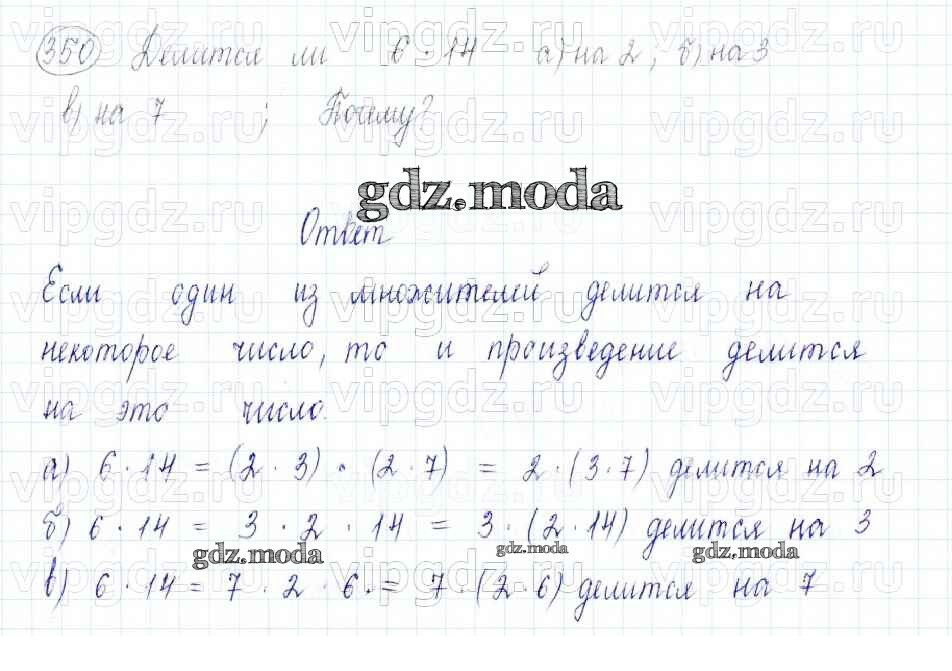 350 Делится ли 6 · 14 а) на 2; б) на 3
в) на 7 ; Почему?
gdz.moda
Ответ
Если один из множителей делится на
некоторое число, то и произведение делится
на это число.
а) 6 · 14 = (2 · 3) · (2 · 7) = 2 · (3 · 7) делится на 2
б) 6 · 14 = 3 · 2 · 14 = 3 · (2 · 14) делится на 3
gdz.moda gdz.moda gdz.moda
в) 6 · 14 = 7 · 2 · 6 · = 7 · (2 · 6) делится на 7
vipgdz.ru